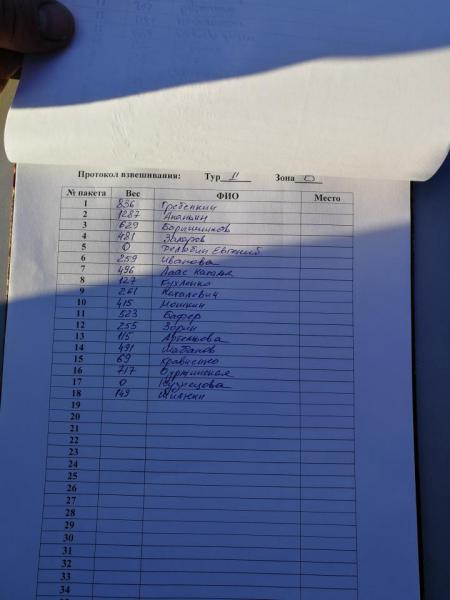 Протокол взвешивания: Тур II Зона D
№ пакета Вес ФИО Место
1 836 Гребенкин
2 1287 Ананьин
3 629
4 481 Захаров
5 0 Евгений
6 259 Иванова
7 496 Лаас
8 127 Кухленко
9 261
10 415 Мошкин
11 523 Бафер
12 255 Зорин
13 115 Артемова
14 491 Шабанов
15 69 Кравченко
16 717
17 0 Кузнецова
18 149
19
20
21
22
23
24
25
26
27
28
29
30
31
32
33
34